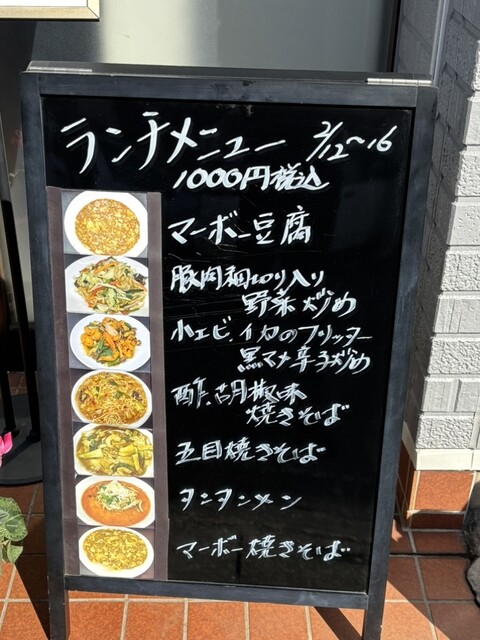 ランチメニュー 2/12～16
1000円税込
マーボー豆腐
豚肉細切り入り
野菜炒め
小エビ、イカのフリッター
黒マメ辛子炒め
酢、胡椒味
焼きそば
五目焼きそば
タンタンメン
マーボー焼きそば